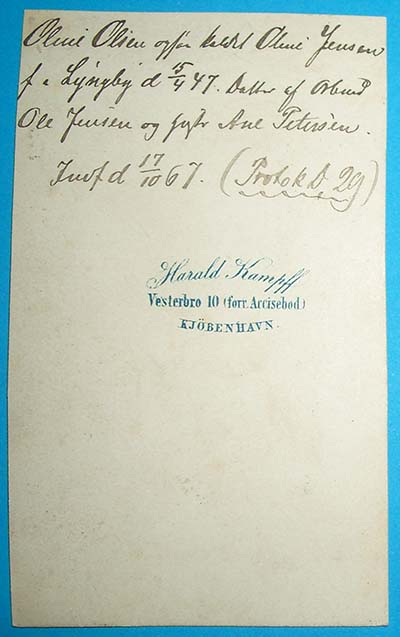 Oline Olsen ogsaa kaldet Oline Jensen
f i Lyngby d 15/4 47. Datter af Arbmd
Ole Jensen og Hustr Ane Petersen.
Indf d 17/10 67. (Protok D. 29)
Harald Kampff
Vesterbro 10 (forr. Accisebod)
KJÖBENHAVN.